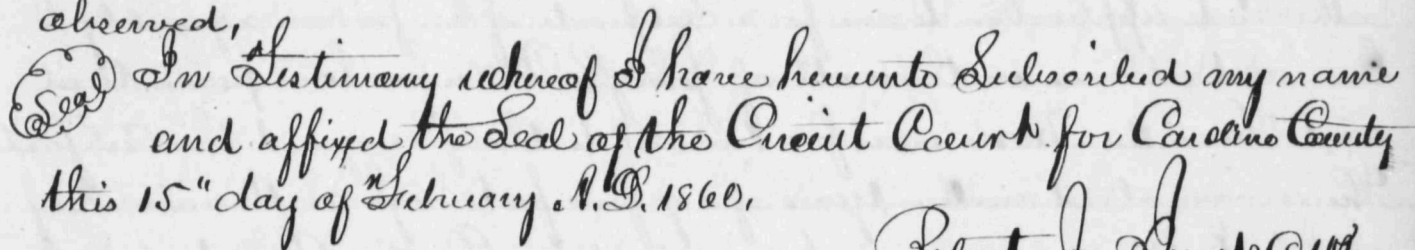 observed,
Seal In Testimony whereof I have hereunto Subscribed my name
and affixed the Seal of the Circuit Court for Caroline County
this 15" day of February A.D. 1860.
Robert J.